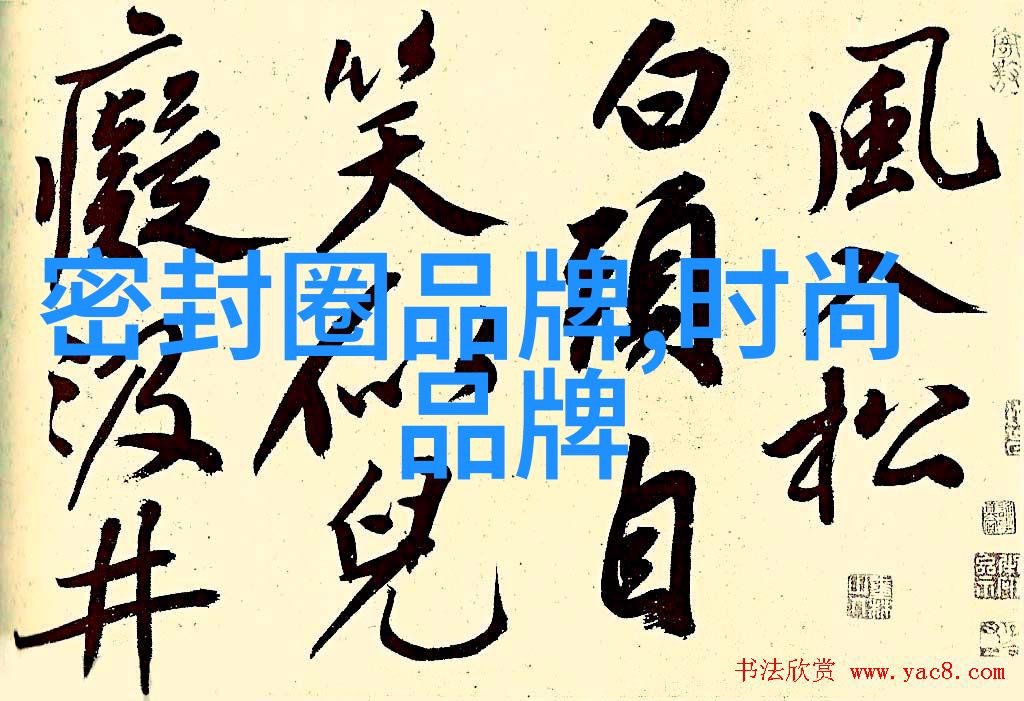 風入松
白頭自
笑似兒
癡汲井
密封圈品牌,时尚
品牌
书法欣赏 www.yac8.com